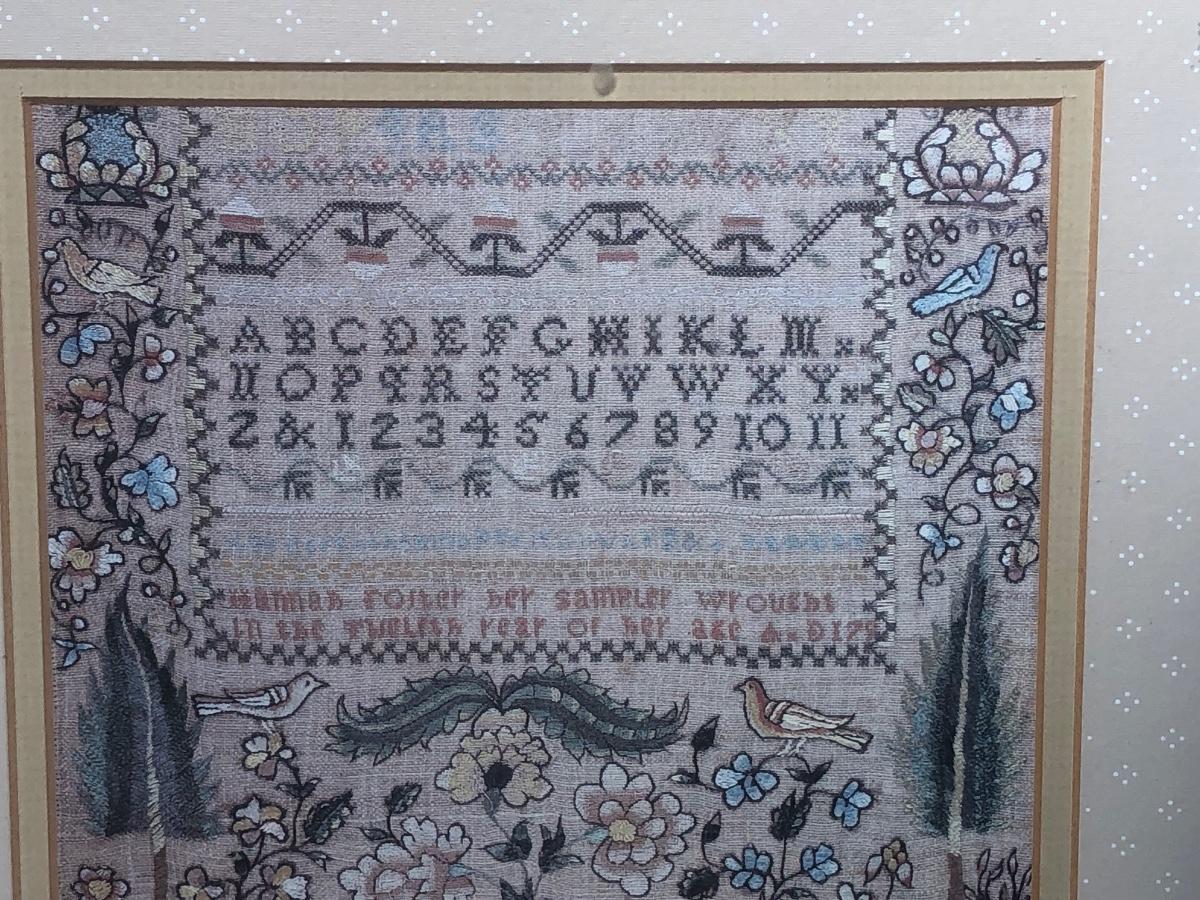 A B C D E F G H I K L M
N O P Q R S T U V W X Y
Z & 1 2 3 4 5 6 7 8 9 10 11
Hannah Foster her sampler wrought
in the twelfth year of her age A.D 17